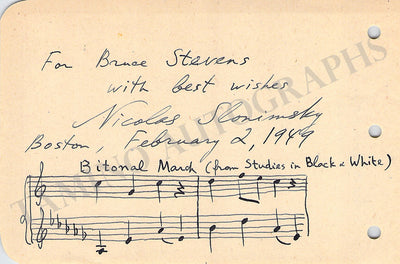 For Bruce Stevens
with best wishes
Nicolas Slonimsky
Boston, February 2, 1949
Bitonal March (from Studies in Black & White)
TAMINO AUTOGRAPHS